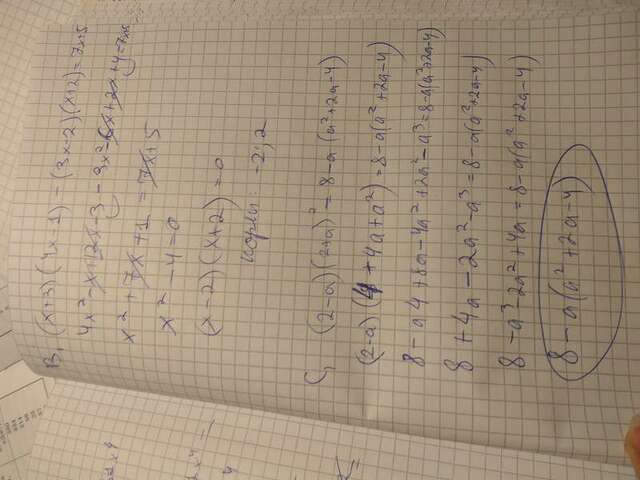 B, (x+3)(4x-1)-(3x-2)(x+2)=7x+5
4x²-x+12x-3-3x²-6x+2x+4=7x+5
x²+7x+1=7x+5
x²-4=0
(x-2)(x+2)=0
корни: -2; 2
C, (2-a)(2+a)²=8-a(a²+2a-4)
(2-a)(4+4a+a²)=8-a(a²+2a-4)
8-a4+8a-4a²+2a²-a³=8-a(a²+2a-4)
8+4a-2a²-a³=8-a(a²+2a-4)
8-a³-2a²+4a=8-a(a²+2a-4)
8-a(a²+2a-4)